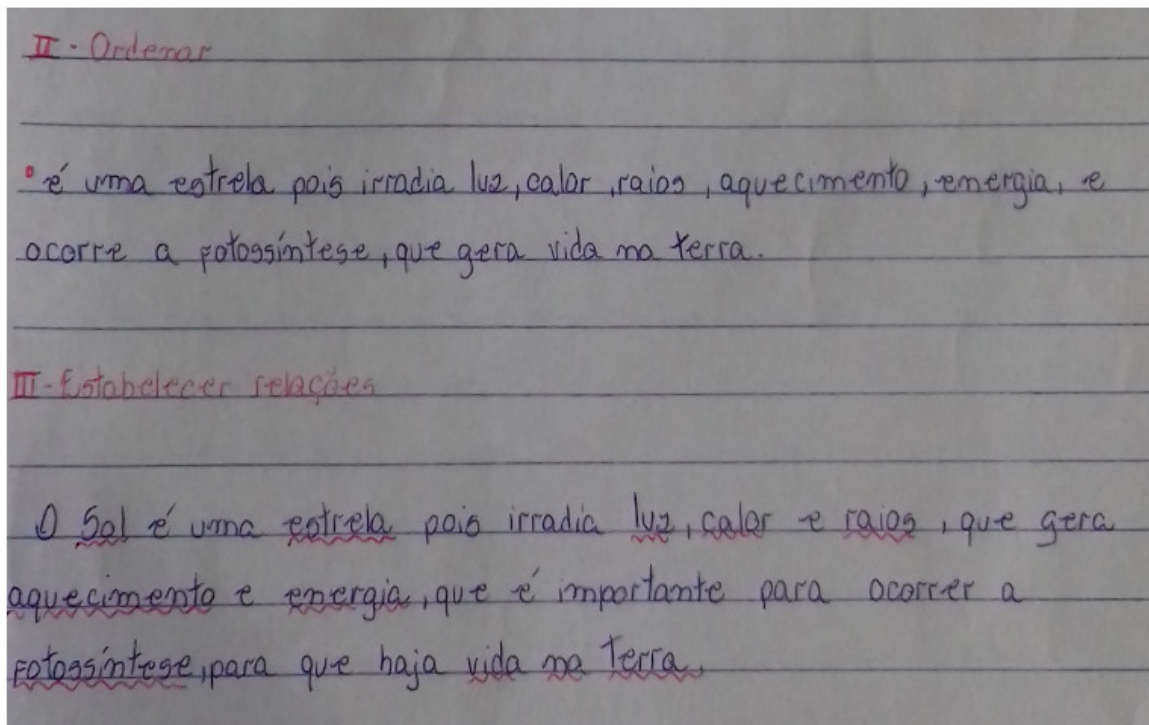 II - Ordenar
é uma estrela pois irradia luz, calor, raios, aquecimento, energia, e
ocorre a fotossíntese, que gera vida na terra.
III - Estabelecer relações
O Sol é uma estrela pois irradia luz, calor e raios, que gera
aquecimento e energia, que é importante para ocorrer a
fotossíntese, para que haja vida na Terra.